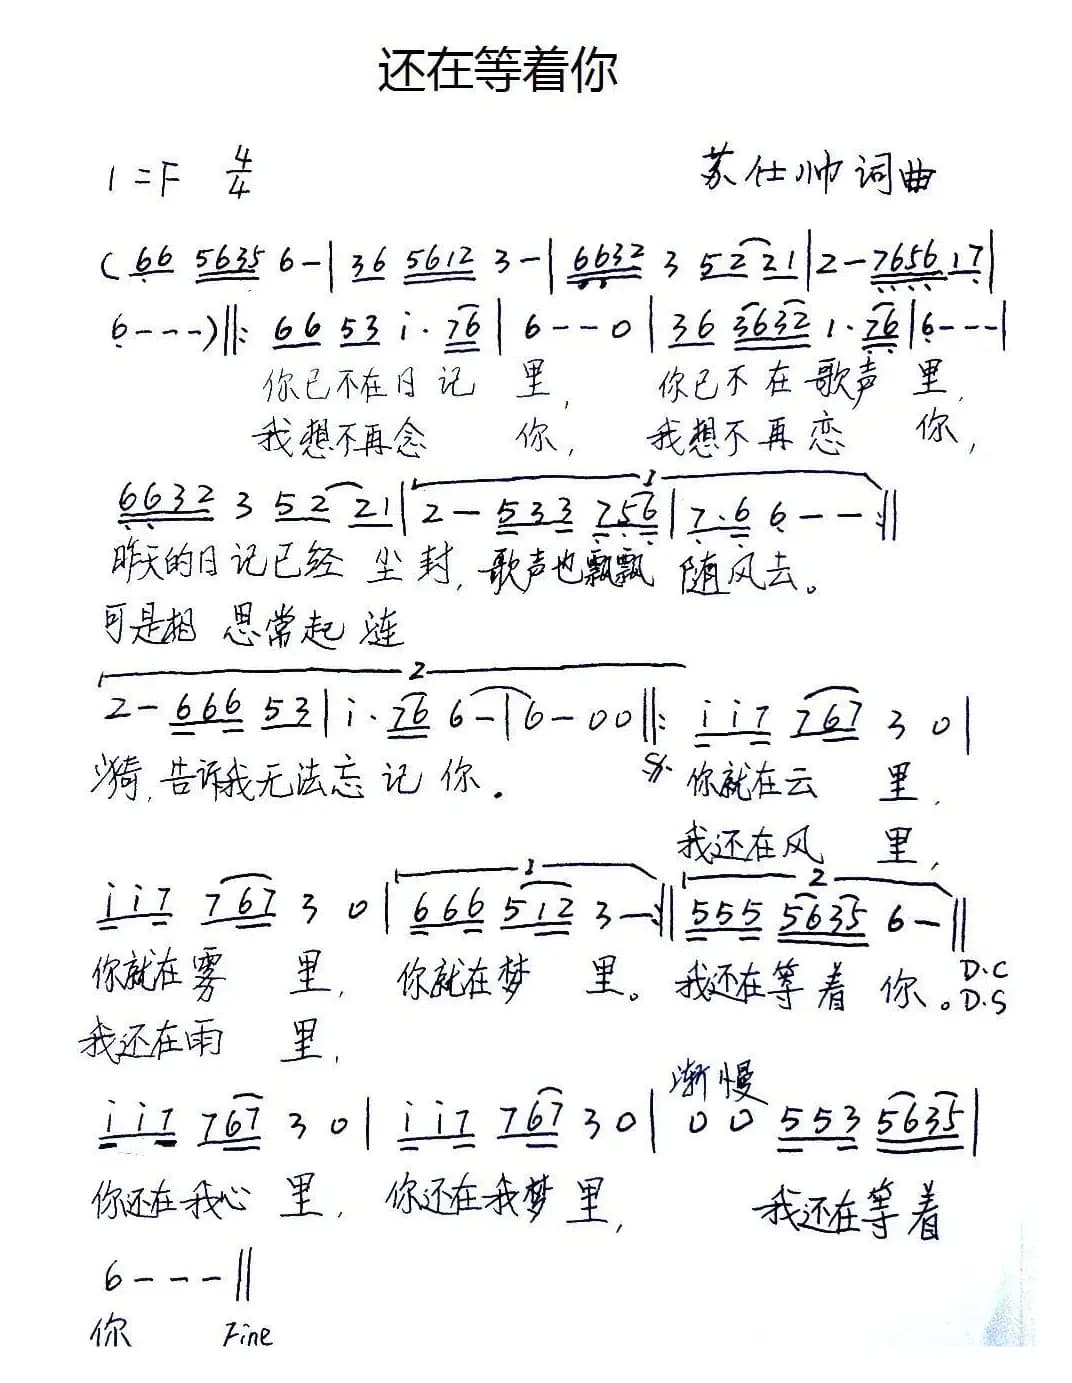 还在等着你
1=F 4/4 苏仕帅词曲
(66 5635 6-|36 5612 3-|6632 3 52 21|2-7656 17|
6---)||: 66 53 i·76|6--0|36 3632 1·76|6---|
你已不在日记 里, 你已不在歌声 里,
我想不再念 你, 我想不再恋 你,
6632 3 52 21|2-533 756|7·6 6--:||
1
昨天的日记已经 尘封, 歌声也飘飘 随风去。
可是相 思常起 涟
2
2-666 53|i·76 6-|6-00||: ii7 767 3 0|
漪, 告诉我无法忘 记 你. 你就在云 里,
我还在风 里,
ii7 767 3 0|666 512 3-:||555 5635 6-||
1 2
你就在雾 里, 你就在梦 里。 我还在等 着 你。 D.C
D.S
我还在雨 里,
渐慢
ii7 767 3 0|ii7 767 3 0|0 0 553 5635|
你还在我心 里, 你还在我梦 里, 我还在等 着
6---||
你 Fine